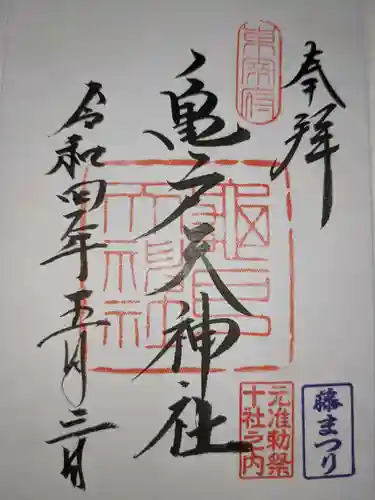 奉拝
東宰府
亀戸天神社
亀戸天神社
令和四年五月三日
元准勅祭
十社之内
藤まつり